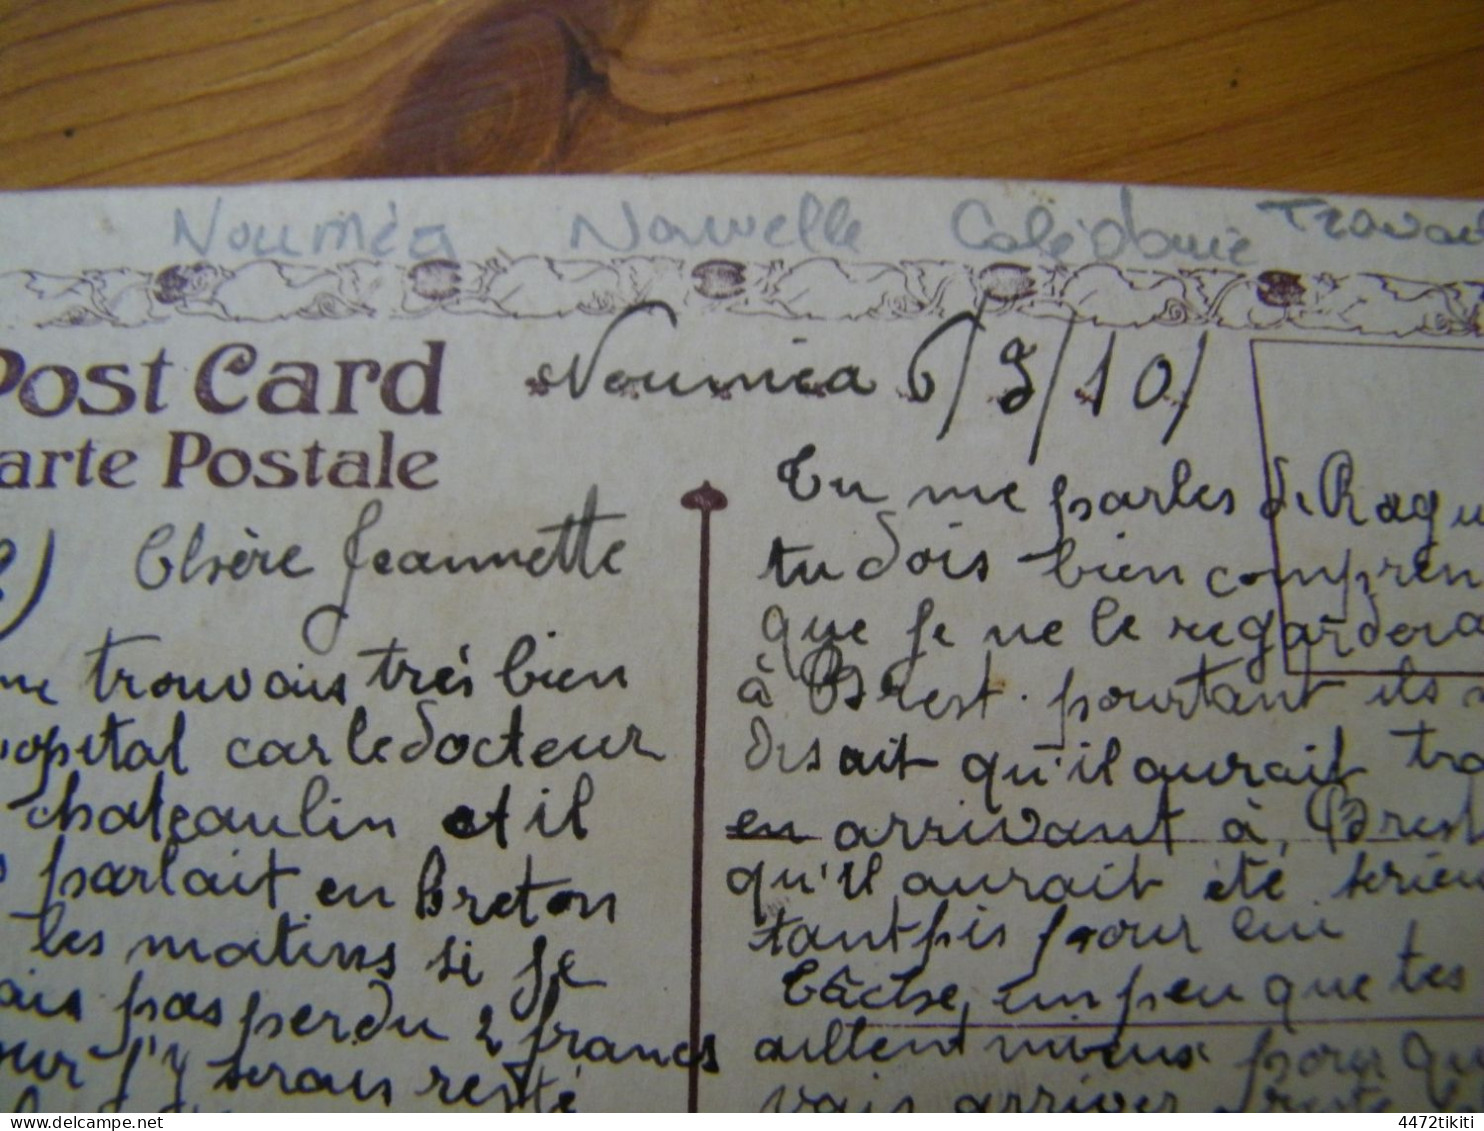 Nouméa Nouvelle Calédonie Travai
Post Card
Carte Postale
Nouméa 6/3/10/
2)
Chère Jeannette
me trouvais très bien
hopital car le docteur
chateaulin et il
parlait en Breton
les matins si je
ais pas perdu 2 francs
our j'y serais resté
Tu me parles de Ragu
tu dois bien compren
que je ne le regardera
à Brest. pourtant ils
disait qu'il aurait tra
en arrivant à, Brest
qu'il aurait été sérieu
tant pis pour lui
Tâche, un peu que tes
aillent mieux pour qu
vais arriver
4472tikiti